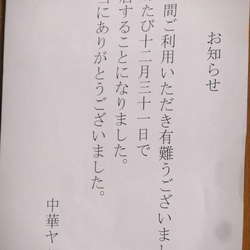 お知らせ
間ご利用いただき有難うございまし
たび十二月三十一日で
店することになりました。
にありがとうございました。
中華ヤ